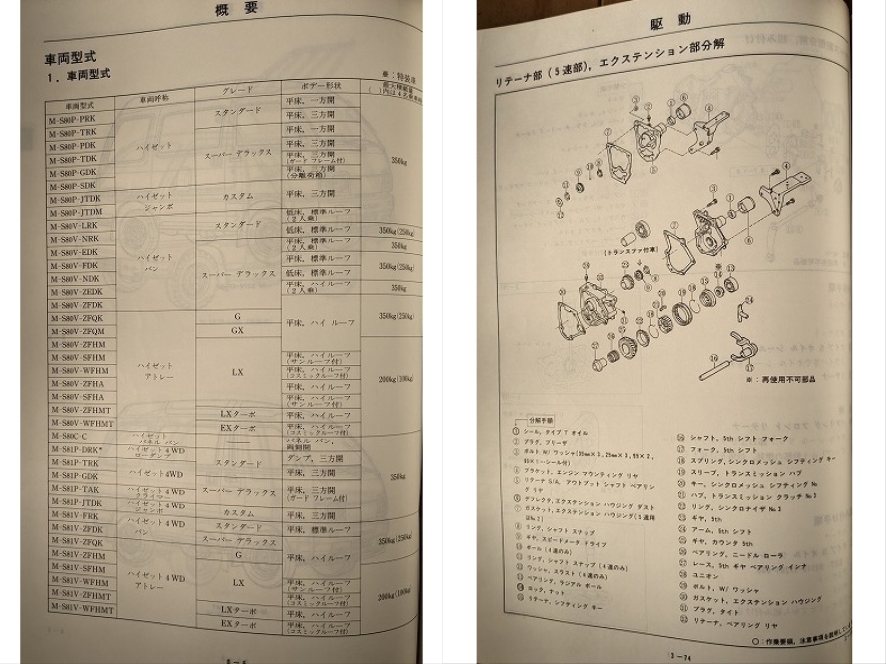 概 要
車両型式
1. 車両型式
※：特装車
車両型式 車両呼称 グレード ボデー形状 最大積載量
M-S80P-PRK
M-S80P-TRK
M-S80P-PDK
M-S80P-TDK
M-S80P-GDK
M-S80P-SDK
M-S80P-JTDK
M-S80P-JTDM
M-S80V-LRK
M-S80V-NRK
M-S80V-EDK
M-S80V-FDK
M-S80V-NDK
M-S80V-ZEDK
M-S80V-ZFDK
M-S80V-ZFQK
M-S80V-ZFQM
M-S80V-ZFHM
M-S80V-SFHM
M-S80V-WFHM
M-S80V-ZFHA
M-S80V-SFHA
M-S80V-ZFHMT
M-S80V-WFHMT
M-S80C-C
M-S81P-DRK*
M-S81P-TRK
M-S81P-GDK
M-S81P-TAK
M-S81P-JTDK
M-S81V-FRK
M-S81V-ZFDK
M-S81V-ZFQK
M-S81V-ZFHM
M-S81V-SFHM
M-S81V-WFHM
M-S81V-ZFHMT
M-S81V-WFHMT
ハイゼット
ハイゼット
ジャンボ
ハイゼット
バン
ハイゼット
アトレー
ハイゼット
パネル バン
ハイゼット 4WD
ローダンプ
ハイゼット4WD
ハイゼット 4WD
クライマー
ハイゼット 4WD
ジャンボ
ハイゼット 4WD
バン
ハイゼット 4WD
アトレー
スタンダード
スーパー デラックス
カスタム
スタンダード
スーパー デラックス
G
GX
LX
LXターボ
EXターボ
スタンダード
スーパー デラックス
カスタム
スタンダード
スーパー デラックス
G
LX
LXターボ
EXターボ
平床, 一方開
平床, 三方開
平床, 一方開
平床, 三方開
平床, 三方開
(ガード フレーム付)
平床, 三方開
(分離荷箱)
平床, 三方開
低床, 標準ルーフ
(2人乗)
低床, 標準ルーフ
平床, 標準ルーフ
(2人乗)
平床, 標準ルーフ
低床, 標準ルーフ
平床, ハイルーフ
(2人乗)
平床, ハイ ルーフ
平床, ハイルーフ
(サンルーフ付)
平床, ハイルーフ
(コスミックルーフ付)
平床, ハイルーフ
平床, ハイルーフ
(サンルーフ付)
平床, ハイルーフ
平床, ハイルーフ
(コスミックルーフ付)
パネル バン,
両側開
ダンプ, 三方開
平床, 三方開
平床, 三方開
(ガード フレーム付)
平床, 三方開
平床, 標準ルーフ
平床, ハイルーフ
平床, ハイルーフ
(サンルーフ付)
平床, ハイルーフ
(コスミックルーフ付)
平床, ハイルーフ
平床, ハイルーフ
(コスミックルーフ付)
350kg
350kg(250kg)
350kg
350kg(250kg)
350kg
350kg(250kg)
200kg(100kg)
350kg
350kg(250kg)
200kg(100kg)
駆 動
リテーナ部（5速部），エクステンション部分解
(トランスファ付車)
※：再使用不可部品
分解手順
① シール, タイプ T オイル
② プラグ, ブリーザ
③ ボルト W/ワッシャ(35mm×1, 25mm×1, 55×2,
④ ブラケット, エンジン マウンティング リヤ
⑤ リテーナ S/A, アウトプット シャフト ベアリン
グ リヤ
⑥ デフレクタ, エクステンション ハウジング ダスト
⑦ ガスケット, エクステンション ハウジング(5速用
はNo.2)
⑧ リング, シャフト スナップ
⑨ ギヤ, スピードメータ ドライブ
⑩ ボール (4速のみ)
⑪ リング, シャフト スナップ (4速のみ)
⑫ ワッシャ, スラスト (4速のみ)
⑬ ベアリング, ラジアル ボール
⑭ ロック, ナット
⑮ リテーナ, シフティング キー
⑯ シャフト, 5th シフト フォーク
⑰ フォーク, 5th シフト
⑱ スプリング, シンクロメッシュ シフティング キー
⑲ スリーブ, トランスミッション ハブ
⑳ キー, シンクロメッシュ シフティング №
㉑ ハブ, トランスミッション クラッチ №3
㉒ リング, シンクロナイザ №3
㉓ ギヤ, 5th
㉔ アーム, 5th シフト
㉕ ギヤ, カウンタ 5th
㉖ ベアリング, ニードル ローラ
㉗ レース, 5th ギヤ ベアリング インナ
㉘ ユニオン
㉙ ボルト, W/ ワッシャ
㉚ ガスケット, エクステンション ハウジング
㉛ プラグ, タイト
㉜ リテーナ, ベアリング リヤ
○：作業要領, 注意事項を説明してい
3-74